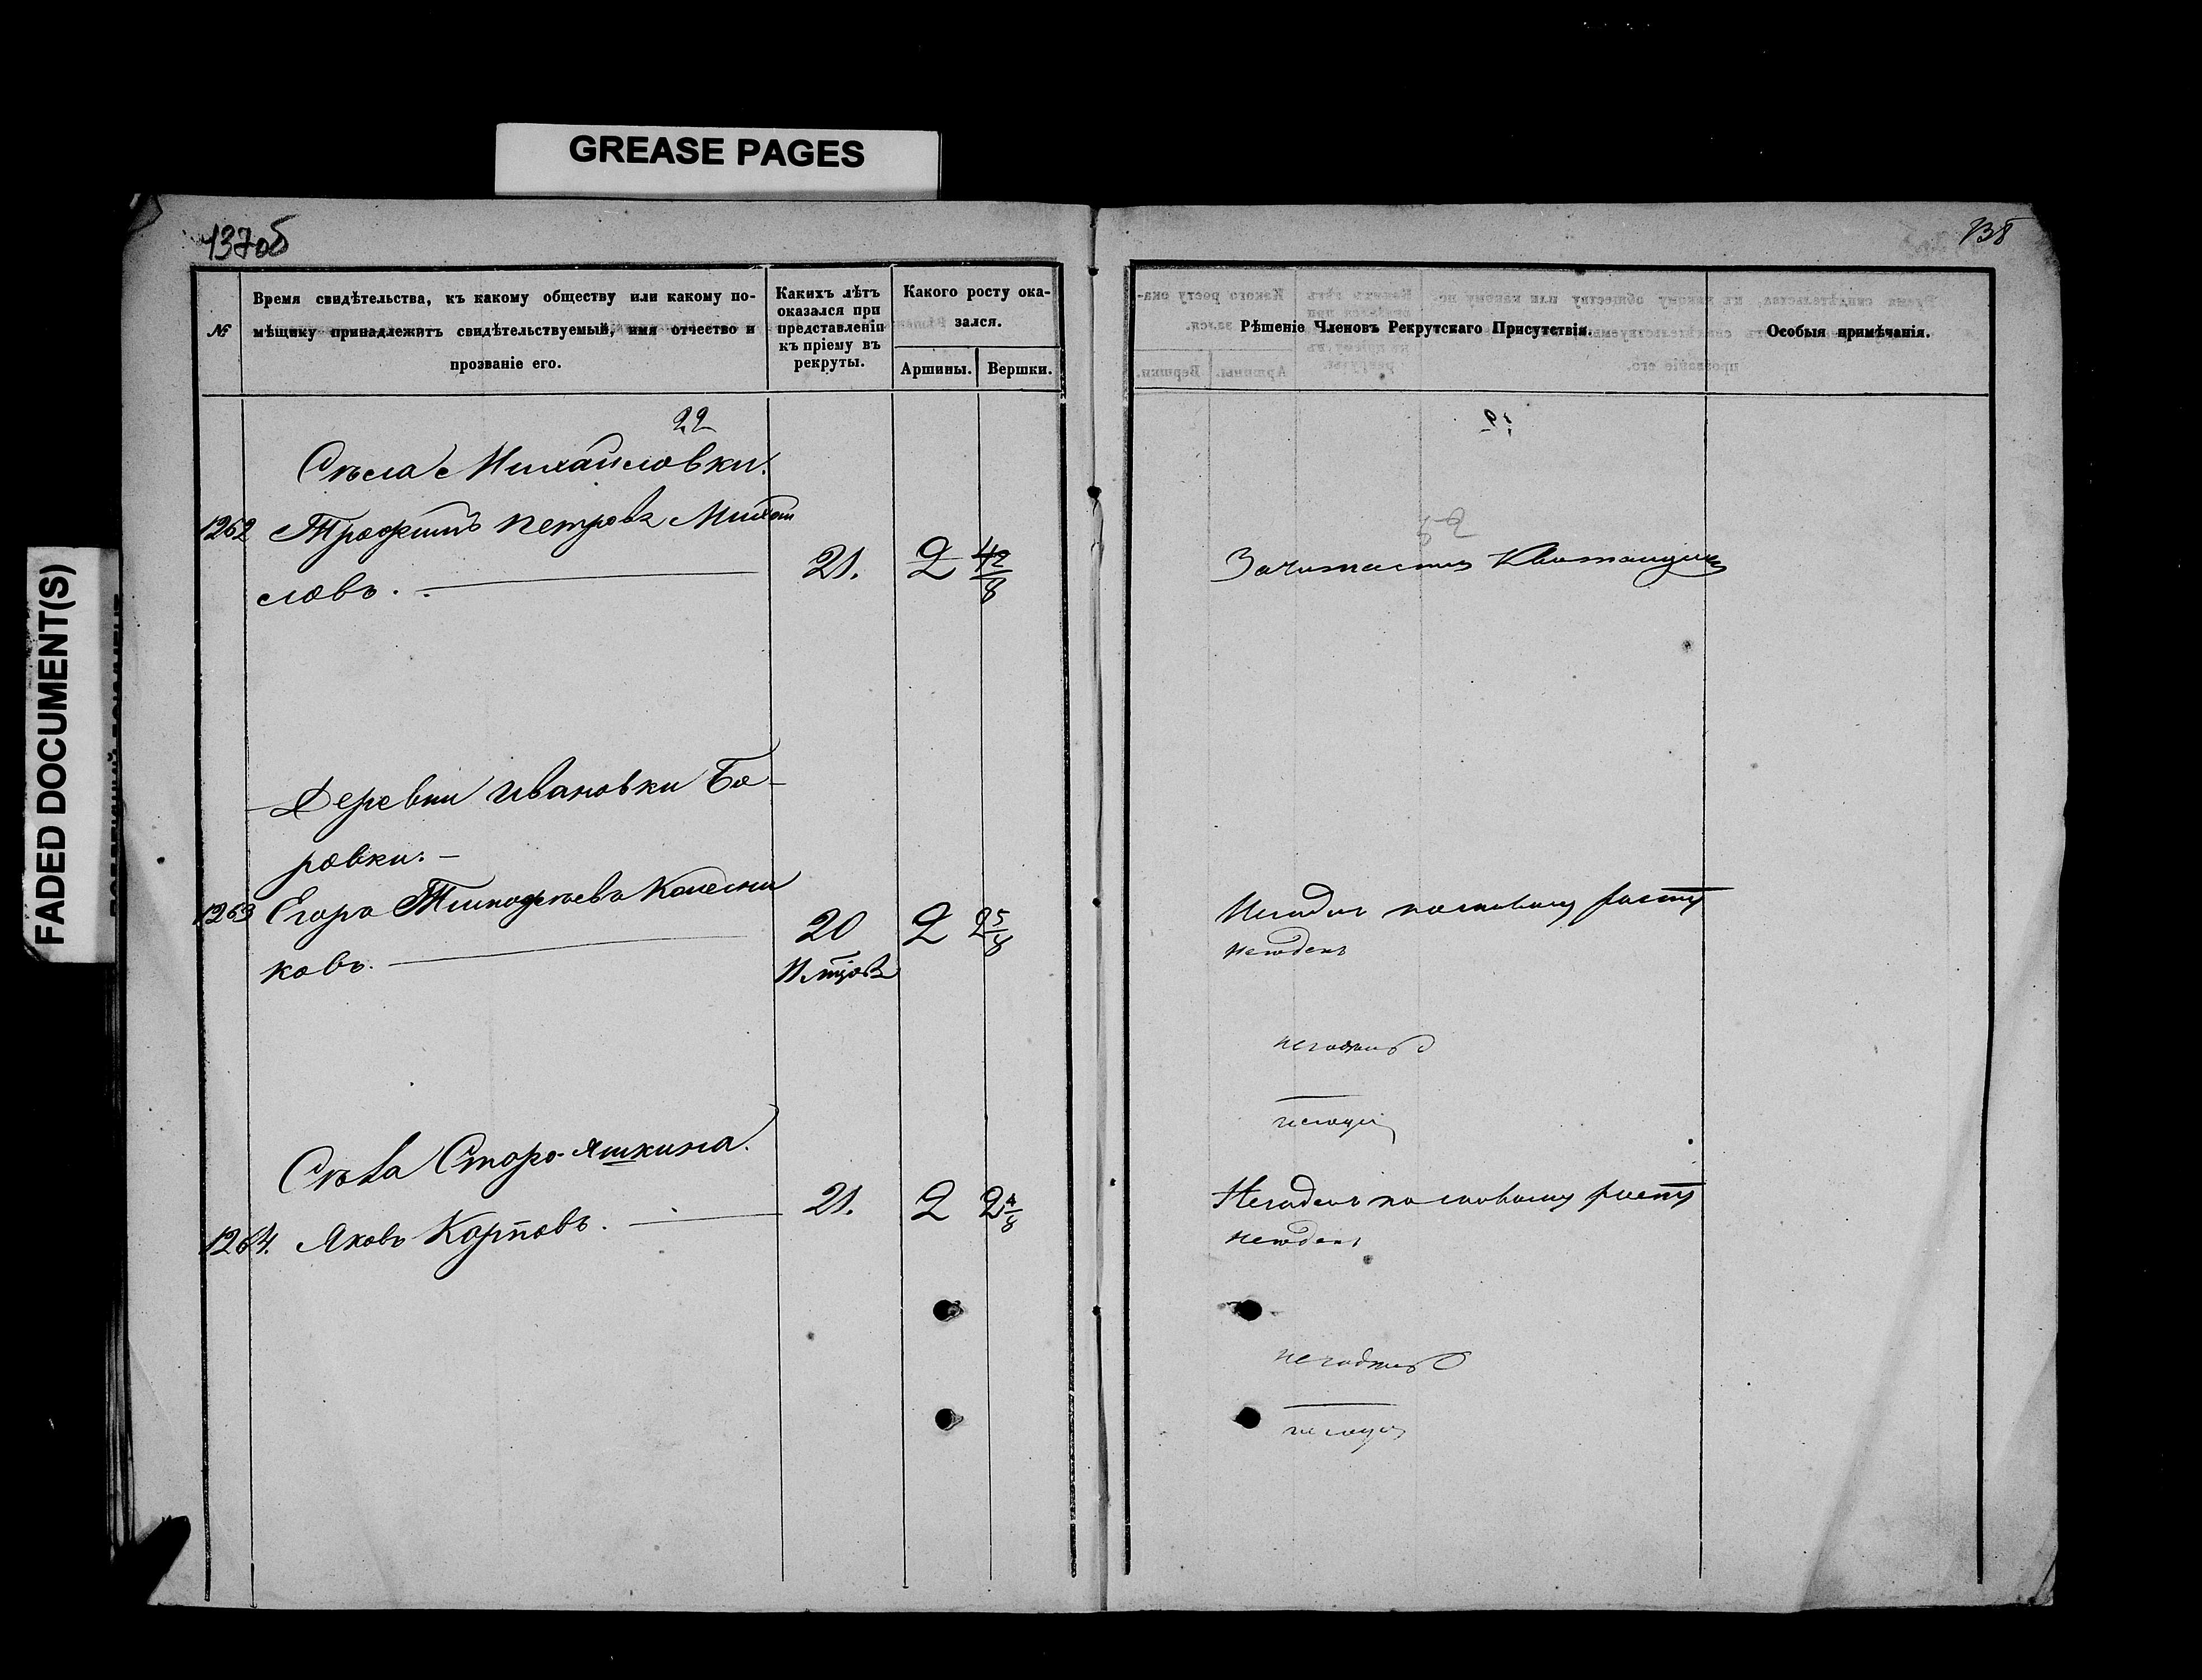 GREASE PAGES
FADED DOCUMENT(S)
137об
№
Время свидѣтельства, къ какому обществу или какому по-
мѣщику принадлежитъ свидѣтельствуемый, имя отчество и
прозваніе его.
Какихъ лѣтъ
оказался при
представленіи
къ пріему въ
рекруты.
Какого росту ока-
зался.
Аршины.
Вершки.
22
Села Михайловки.
1262 Трофимъ Петровъ Михай
ловъ.
21. 2 4 2/8
Деревни Ивановки Бо-
ровки.
1263 Егоръ Тимофѣевъ Колесни
ковъ.
20 2 2 5/8
Села Старо-Яшкина.
1264. Яковъ Карповъ. 21. 2 2 4/8
138
Рѣшеніе Членовъ Рекрутскаго Присутствія.
Особыя примѣчанія.
Зачитается Квитанція
Негоденъ по малому росту
негоденъ
негоденъ
Негоденъ по малому росту
негоденъ
негоденъ